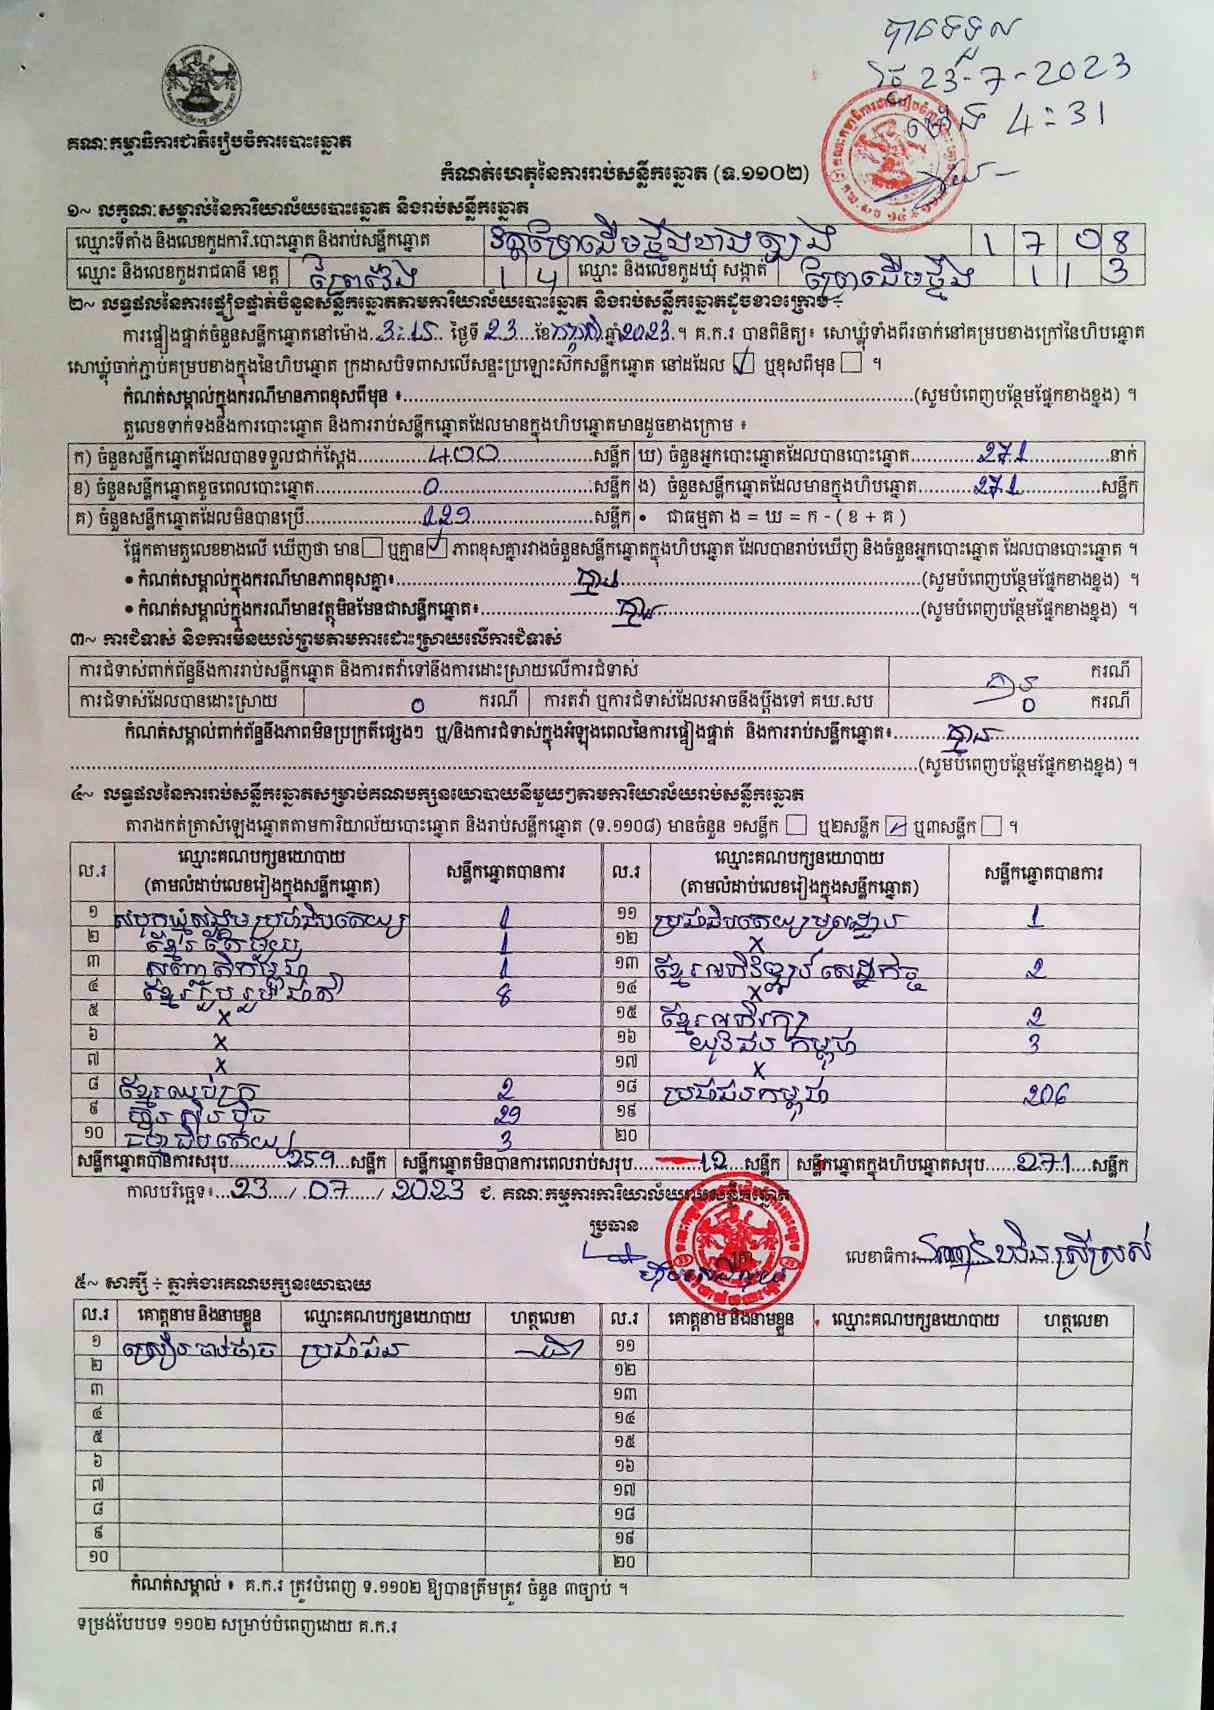 បានទទួល
ថ្ងៃ 23-7-2023
ម៉ោង 4:31
គណៈកម្មាធិការជាតិរៀបចំការបោះឆ្នោត
កំណត់ហេតុនៃការរាប់សន្លឹកឆ្នោត (ទ.១១០២)
១~ លក្ខណៈសម្គាល់នៃការិយាល័យបោះឆ្នោត និងរាប់សន្លឹកឆ្នោត
ឈ្មោះទីតាំង និងលេខកូដការិ.បោះឆ្នោត និងរាប់សន្លឹកឆ្នោត វត្តព្រៃដើមថ្នឹងខាងត្បូង 1 7 0 8
ឈ្មោះ និងលេខកូដរាជធានី ខេត្ត ព្រៃវែង 1 4 ឈ្មោះ និងលេខកូដឃុំ សង្កាត់ ព្រៃដើមថ្នឹង 1 1 3
២~ លទ្ធផលនៃការផ្ទៀងផ្ទាត់ចំនួនសន្លឹកឆ្នោតតាមការិយាល័យបោះឆ្នោត និងរាប់សន្លឹកឆ្នោតដូចខាងក្រោម ÷
ការផ្ទៀងផ្ទាត់ចំនួនសន្លឹកឆ្នោតនៅម៉ោង 3:15 ថ្ងៃទី 23 ខែ កក្កដា ឆ្នាំ 2023 ។ គ.ក.រ បានពិនិត្យ៖ សោឃ្លុំទាំងពីរចាក់នៅគម្របខាងក្រៅនៃហិបឆ្នោត
សោឃ្លុំចាក់ភ្ជាប់គម្របខាងក្នុងនៃហិបឆ្នោត ក្រដាសបិទពាសលើសន្ទះប្រឡោះស៊កសន្លឹកឆ្នោត នៅដដែល ☑ ឬខុសពីមុន ☐ ។
កំណត់សម្គាល់ក្នុងករណីមានភាពខុសពីមុន ៖ (សូមបំពេញបន្ថែមផ្នែកខាងខ្នង) ។
តួលេខទាក់ទងនឹងការបោះឆ្នោត និងការរាប់សន្លឹកឆ្នោតដែលមានក្នុងហិបឆ្នោតមានដូចខាងក្រោម ៖
ក) ចំនួនសន្លឹកឆ្នោតដែលបានទទួលជាក់ស្តែង 400 សន្លឹក ឃ) ចំនួនអ្នកបោះឆ្នោតដែលបានបោះឆ្នោត 271 នាក់
ខ) ចំនួនសន្លឹកឆ្នោតខូចពេលបោះឆ្នោត 0 សន្លឹក ង) ចំនួនសន្លឹកឆ្នោតដែលមានក្នុងហិបឆ្នោត 271 សន្លឹក
គ) ចំនួនសន្លឹកឆ្នោតដែលមិនបានប្រើ 129 សន្លឹក • ជាធម្មតា ង = ឃ = ក - ( ខ + គ )
ផ្អែកតាមតួលេខខាងលើ ឃើញថា មាន ☐ ឬគ្មាន ☑ ភាពខុសគ្នារវាងចំនួនសន្លឹកឆ្នោតក្នុងហិបឆ្នោត ដែលបានរាប់ឃើញ និងចំនួនអ្នកបោះឆ្នោត ដែលបានបោះឆ្នោត ។
• កំណត់សម្គាល់ក្នុងករណីមានភាពខុសគ្នា៖ គ្មាន (សូមបំពេញបន្ថែមផ្នែកខាងខ្នង) ។
• កំណត់សម្គាល់ក្នុងករណីមានវត្ថុមិនមែនជាសន្លឹកឆ្នោត៖ គ្មាន (សូមបំពេញបន្ថែមផ្នែកខាងខ្នង) ។
៣~ ការជំទាស់ និងការមិនយល់ព្រមតាមការដោះស្រាយលើការជំទាស់
ការជំទាស់ពាក់ព័ន្ធនឹងការរាប់សន្លឹកឆ្នោត និងការតវ៉ាទៅនឹងការដោះស្រាយលើការជំទាស់ ករណី
ការជំទាស់ដែលបានដោះស្រាយ 0 ករណី ការតវ៉ា ឬការជំទាស់ដែលអាចនឹងប្តឹងទៅ គឃ.សប 0 ករណី
កំណត់សម្គាល់ពាក់ព័ន្ធនឹងភាពមិនប្រក្រតីផ្សេងៗ ឬ/និងការជំទាស់ក្នុងអំឡុងពេលនៃការផ្ទៀងផ្ទាត់ និងការរាប់សន្លឹកឆ្នោត៖ គ្មាន
(សូមបំពេញបន្ថែមផ្នែកខាងខ្នង) ។
៤~ លទ្ធផលនៃការរាប់សន្លឹកឆ្នោតសម្រាប់គណបក្សនយោបាយនីមួយៗតាមការិយាល័យរាប់សន្លឹកឆ្នោត
តារាងកត់ត្រាសំឡេងឆ្នោតតាមការិយាល័យបោះឆ្នោត និងរាប់សន្លឹកឆ្នោត (ទ.១១០៨) មានចំនួន ១សន្លឹក ☐ ឬ២សន្លឹក ☑ ឬ៣សន្លឹក ☐ ។
ល.រ ឈ្មោះគណបក្សនយោបាយ (តាមលំដាប់លេខរៀងក្នុងសន្លឹកឆ្នោត) សន្លឹកឆ្នោតបានការ ល.រ ឈ្មោះគណបក្សនយោបាយ (តាមលំដាប់លេខរៀងក្នុងសន្លឹកឆ្នោត) សន្លឹកឆ្នោតបានការ
១ សំបុកឃ្មុំសង្គមប្រជាធិបតេយ្យ 1 ១១ ប្រជាធិបតេយ្យមូលដ្ឋាន 1
២ ខ្មែរតែមួយ 1 ១២ x
៣ សញ្ជាតិកម្ពុជា 1 ១៣ ខ្មែរអភិវឌ្ឍន៍សេដ្ឋកិច្ច 2
៤ ខ្មែររួបរួមជាតិ 8 ១៤ x
៥ x ១៥ ខ្មែរអភិរក្ស 2
៦ x ១៦ យុវជនកម្ពុជា 3
៧ x ១៧ x
៨ ខ្មែរឈប់ក្រ 2 ១៨ ប្រជាជនកម្ពុជា 206
៩ ហ៊្វុនស៊ិនប៉ិច 29 ១៩
១០ ធម្មាធិបតេយ្យ 3 ២០
សន្លឹកឆ្នោតបានការសរុប 259 សន្លឹក សន្លឹកឆ្នោតមិនបានការពេលរាប់សរុប 12 សន្លឹក សន្លឹកឆ្នោតក្នុងហិបឆ្នោតសរុប 271 សន្លឹក
កាលបរិច្ឆេទ៖ 23 / 07 / 2023 ជ. គណៈកម្មការការិយាល័យរាប់សន្លឹកឆ្នោត
ប្រធាន
លេខាធិការ
៥~ សាក្សី ÷ ភ្នាក់ងារគណបក្សនយោបាយ
ល.រ គោត្តនាម និងនាមខ្លួន ឈ្មោះគណបក្សនយោបាយ ហត្ថលេខា ល.រ គោត្តនាម និងនាមខ្លួន ឈ្មោះគណបក្សនយោបាយ ហត្ថលេខា
១ ប្រជាជន ១១
២ ១២
៣ ១៣
៤ ១៤
៥ ១៥
៦ ១៦
៧ ១៧
៨ ១៨
៩ ១៩
១០ ២០
កំណត់សម្គាល់ ៖ គ.ក.រ ត្រូវបំពេញ ទ.១១០២ ឱ្យបានត្រឹមត្រូវ ចំនួន ៣ច្បាប់ ។
ទម្រង់បែបបទ ១១០២ សម្រាប់បំពេញដោយ គ.ក.រ